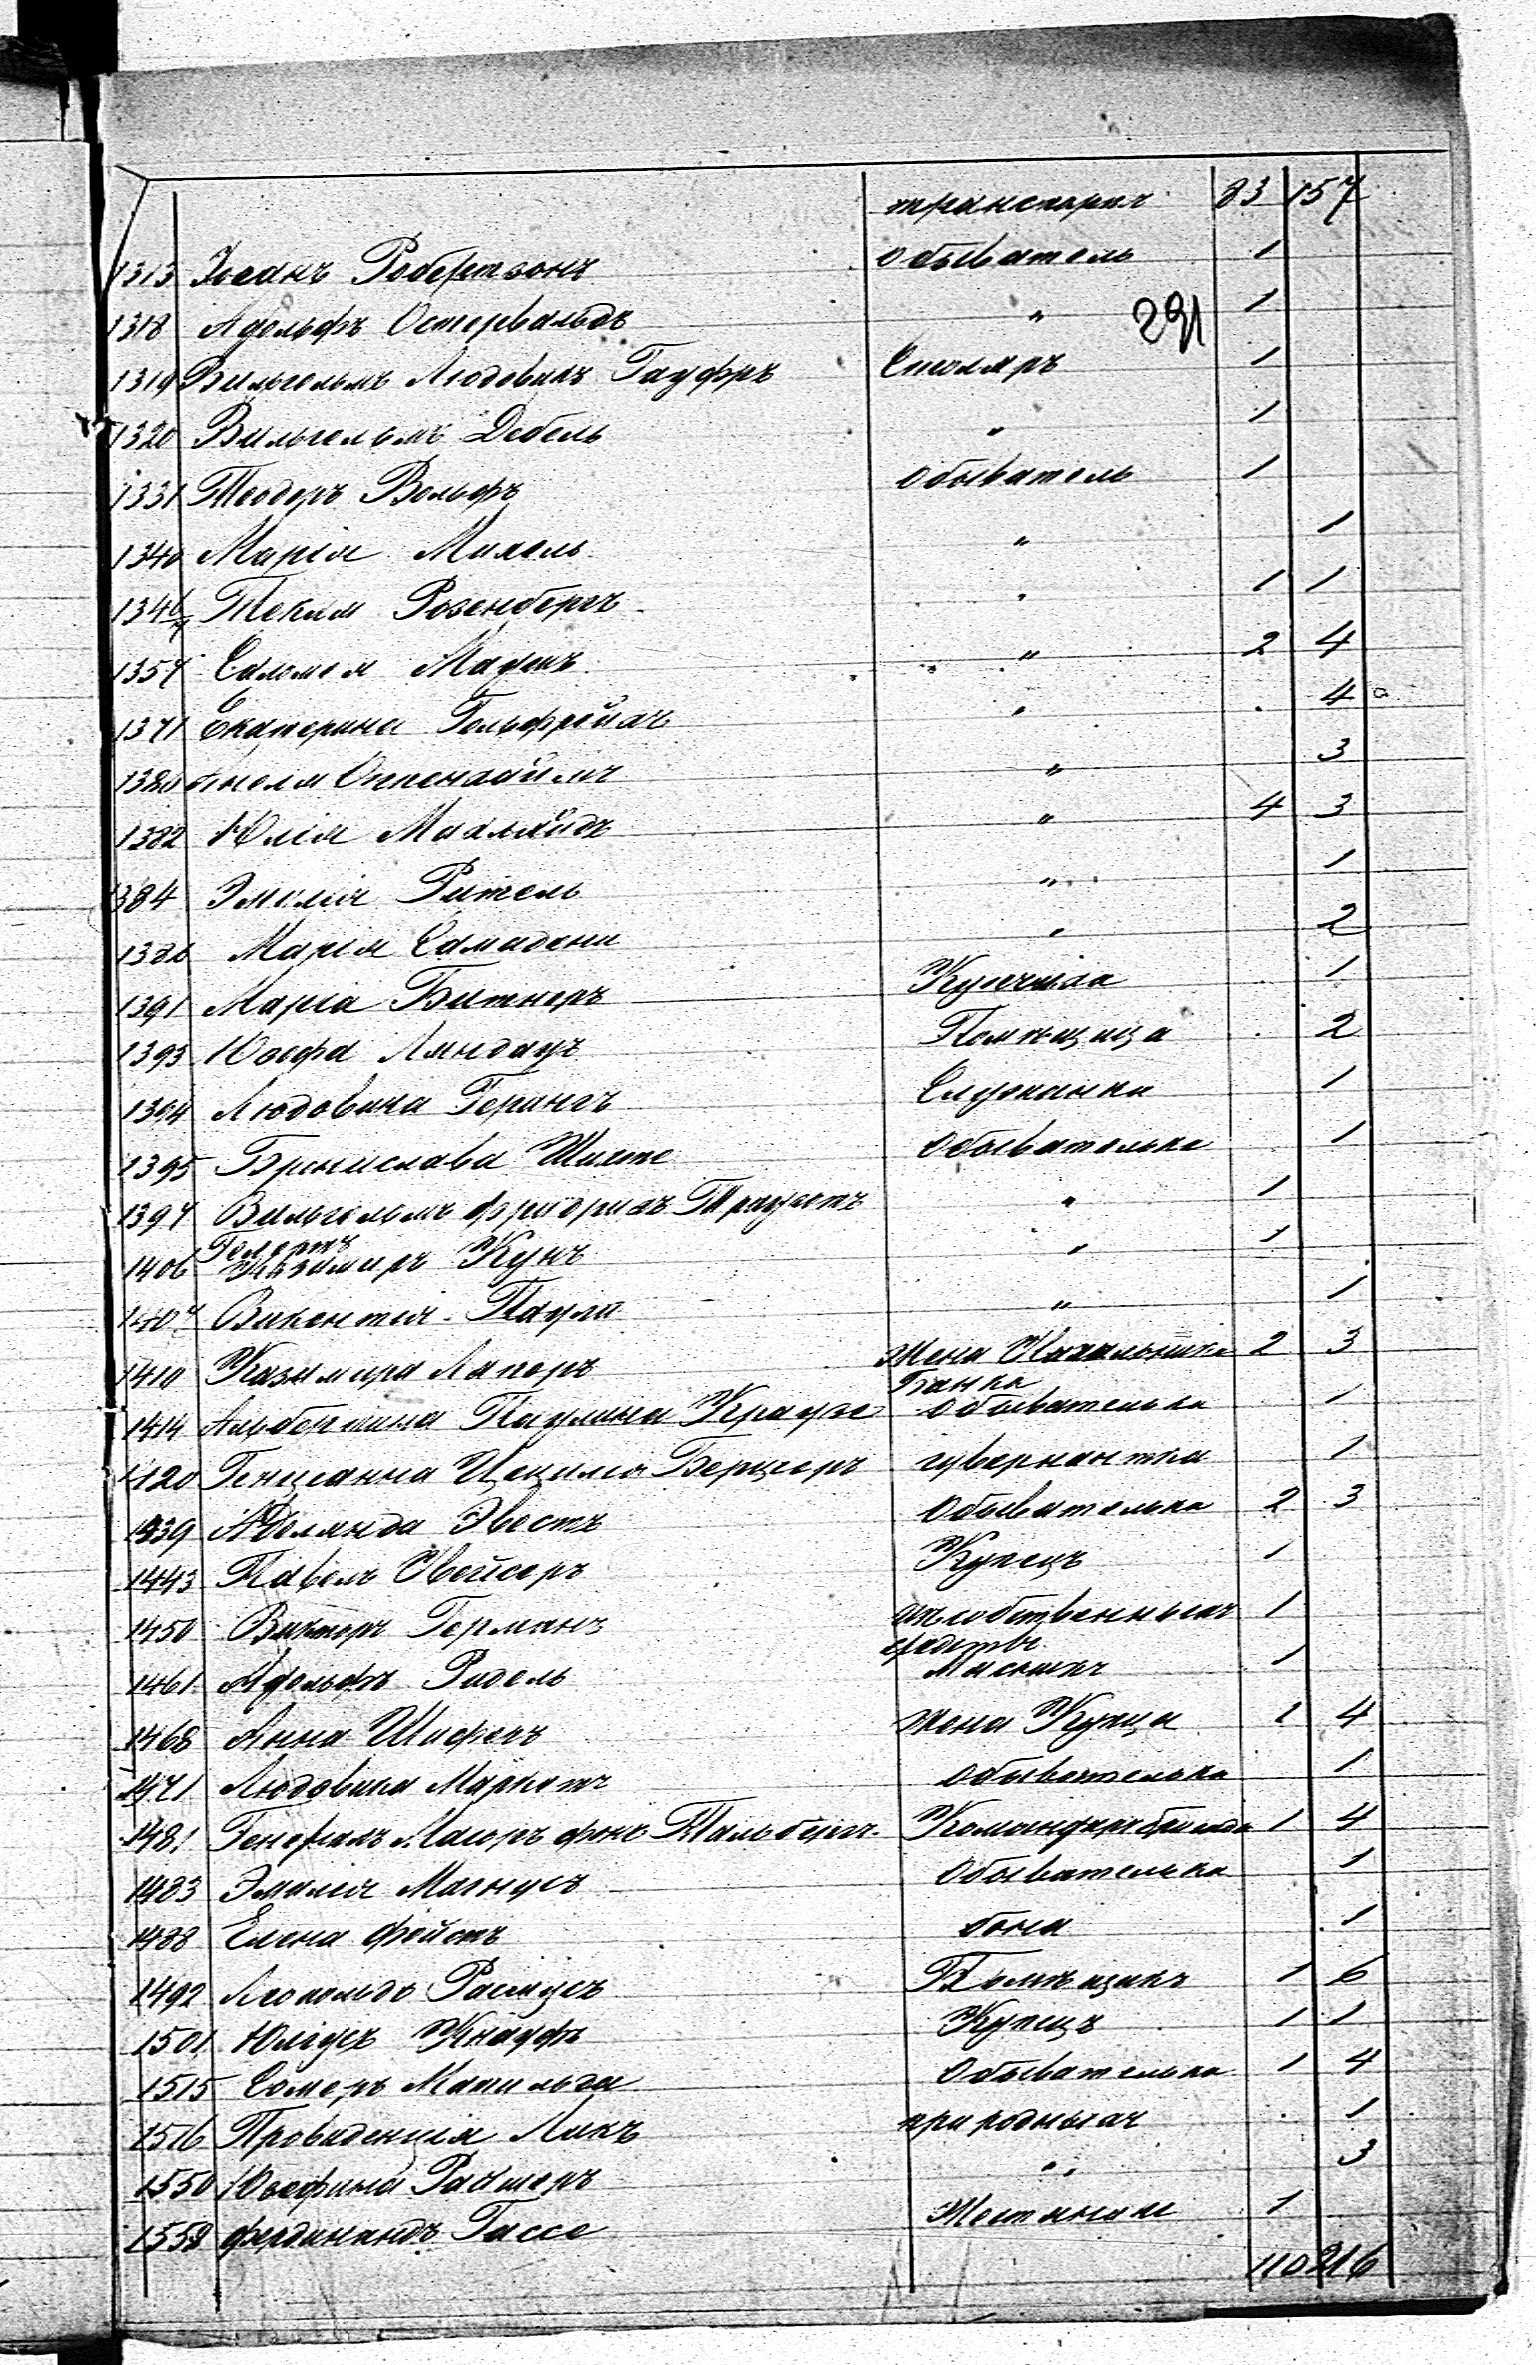 транспорт 83 157
1313 Иоганъ Робертзонъ Обыватель 1
1318 Адольфъ Остервальдъ " 1
291
1319 Вильгельмъ Людовикъ Гауфръ Столяръ 1
1320 Вильгельмъ Дебель " 1
1331 Теодоръ Вольфъ Обыватель 1
1340 Марія Михель " 1
1346/7 Текля Розенбергъ " 1 1
1357 Саломея Мадетъ " 2 4
1371 Екатерина Гольфрейхъ " 4
1380 Анеля Оппенхаймъ " 3
1382 Юлія Махлейдъ " 4 3
1384 Эмилія Ритель " 1
1386 Марія Самадени " 2
1391 Марія Битнеръ Купчиха 1
1393 Юзефа Ляндау Помѣщица 2
1394 Людовика Герингъ Служанка 1
1395 Брониславa Шихте Обывателька 1
1397 Вильгельмъ Фридрихъ Траутъ " 1
1406 Казимиръ Кунъ " 1
1407 Викентія Паули " 1
1410 Казимира Лаперъ Жена Начальника 2 3
Банка
1414 Альбертина Паулина Краузе Обывателька 1
1420 Генціанна Цецилія Бергеръ гувернантка 1
1439 Іоланда Эвестъ Обывателька 2 3
1443 Павелъ Швейсеръ Купецъ 1
1450 Викторъ Германъ изъ собственныхъ 1
средствъ
1461 Адольфъ Ридель Мясникъ 1
1468 Анна Шиферъ жена Купца 1 4
1471 Людовика Маркотъ Обывателька 1
1481 Генералъ Маіоръ фонъ Тальбергъ Командиръ бригады 1 4
1483 Эмилія Магнусъ Обывателька 1
1488 Елена Фейстъ бона 1
1492 Леопольдъ Расмусъ Помѣщикъ 1 6
1501 Юліусъ Кнауфъ Купецъ 1 1
1515 Сомеръ Матильда Обывателька 1 4
1516 Провиденція Ликъ при родныхъ 1
1550 Юзефина Рахтеръ " 3
1558 Фердинандъ Гассе Жестяникъ 1
110 216